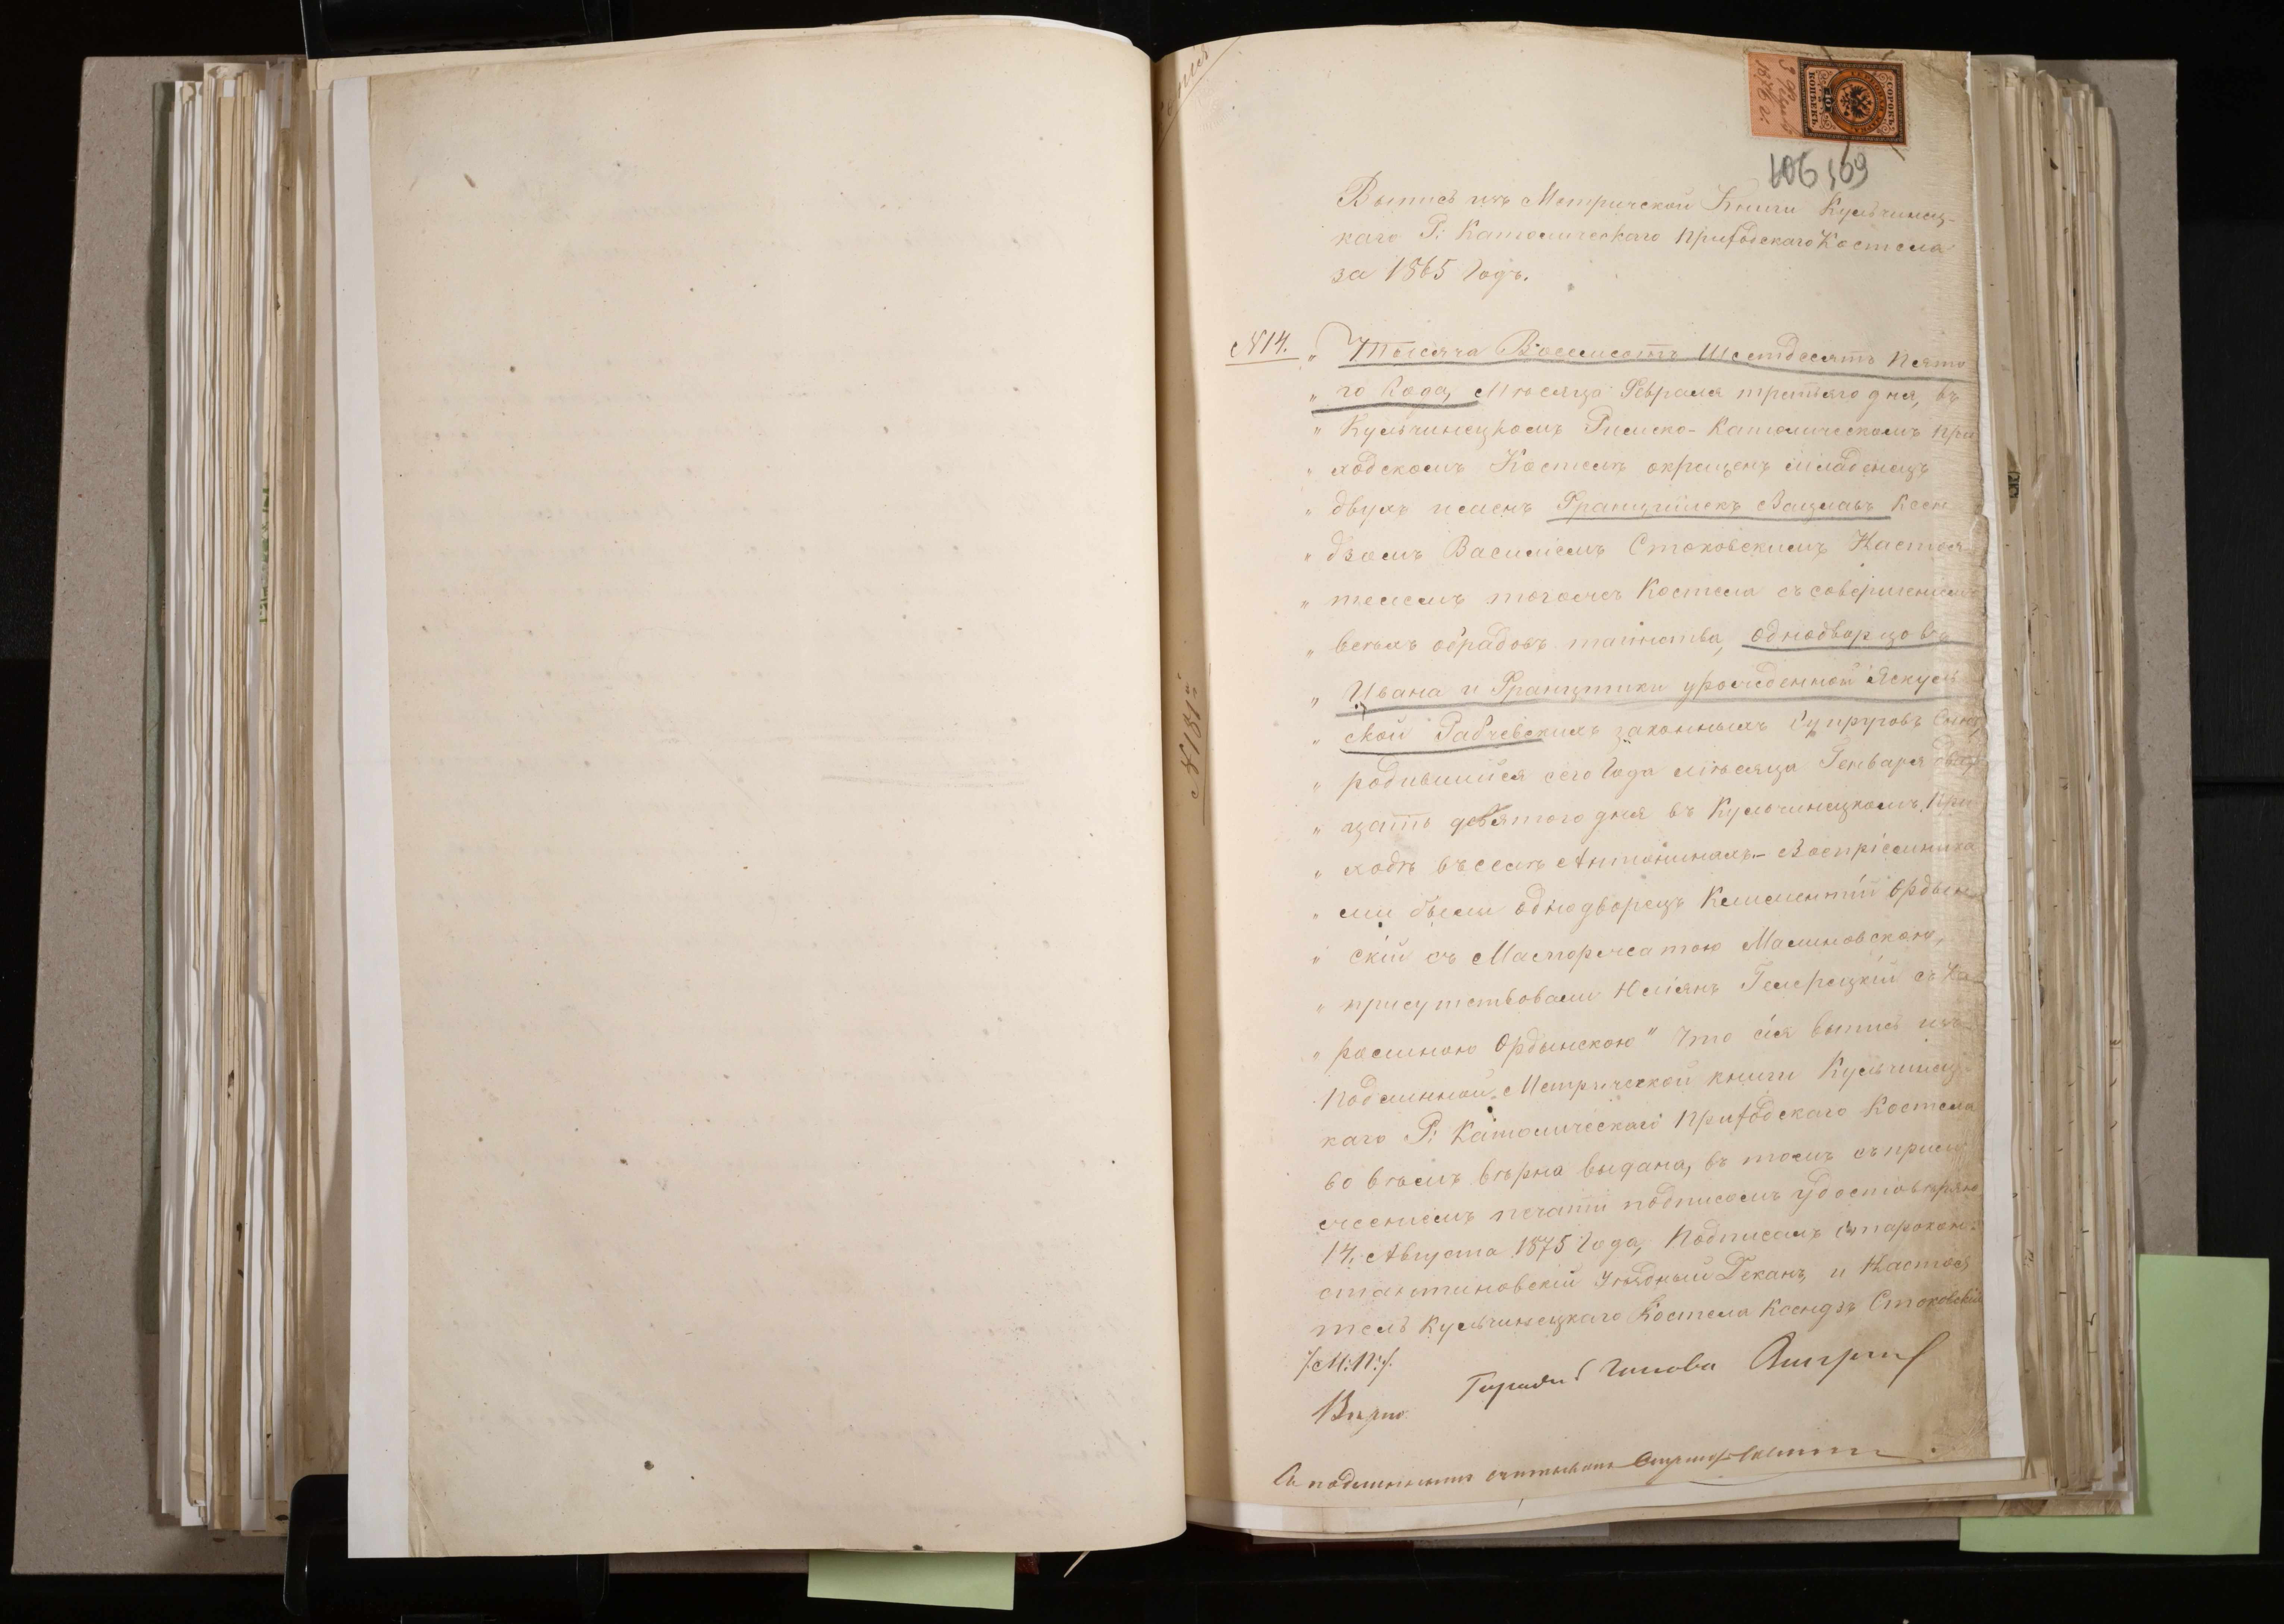 Копія
СОРОКЪ
ГЕРБОВАЯ МАРКА
40
КОПѢЕКЪ
1876 г.
106 109
Выпись изъ Метрической Книги Кульчинец-
каго Р: Католическаго Приходскаго Костела
за 1865 Годъ.
N 14. „ Тысяча Восемсотъ Шестдесятъ Пято
„ го Года, Мѣсяца Февраля третьяго дня, въ
„ Кульчинецкомъ Римско-Католическомъ При
„ ходскомъ Костелѣ окрещенъ младенецъ
„ двухъ именъ Францишекъ Вацлавъ Ксен
„ дзомъ Василіемъ Стоковскимъ Настоя
„ телемъ тогоже Костела съ совершеніемъ
„ всѣхъ обрядовъ таинства, однодворцовъ
„ Ивана и Францишки урожденной Яскуль
„ ской Рабчевскихъ законныхъ Супруговъ Сынъ,
„ родившійся сего Года мѣсяца Генваря двад
„ цать девятого дня въ Кульчинецкомъ При
„ ходѣ въ селѣ Антонинахъ.- Воспріемника
„ ми были однодворецъ Климентій Ордын
„ скій съ Маргоржатою Малиновскою,
„ присутствовали Юліянъ Гемерецкій съ Ка
„ ролиною Ордынскою" Что сія выпись изъ
Подлинной Метрической книги Кульчинец
каго Р: Католическаго Приходскаго Костела
во всѣмъ вѣрна выдана, въ томъ съ прило
женіемъ печати подписомъ удостовѣряю
14. Августа 1875 Года, Подписалъ Старокон-
стантиновскій Уѣздный Деканъ и Настоя
тель Кульчинецкаго Костела Ксендзъ Стоковскій
/:М:П:/.
Вѣрно:
Съ подлиннымъ считывалъ
N 131й